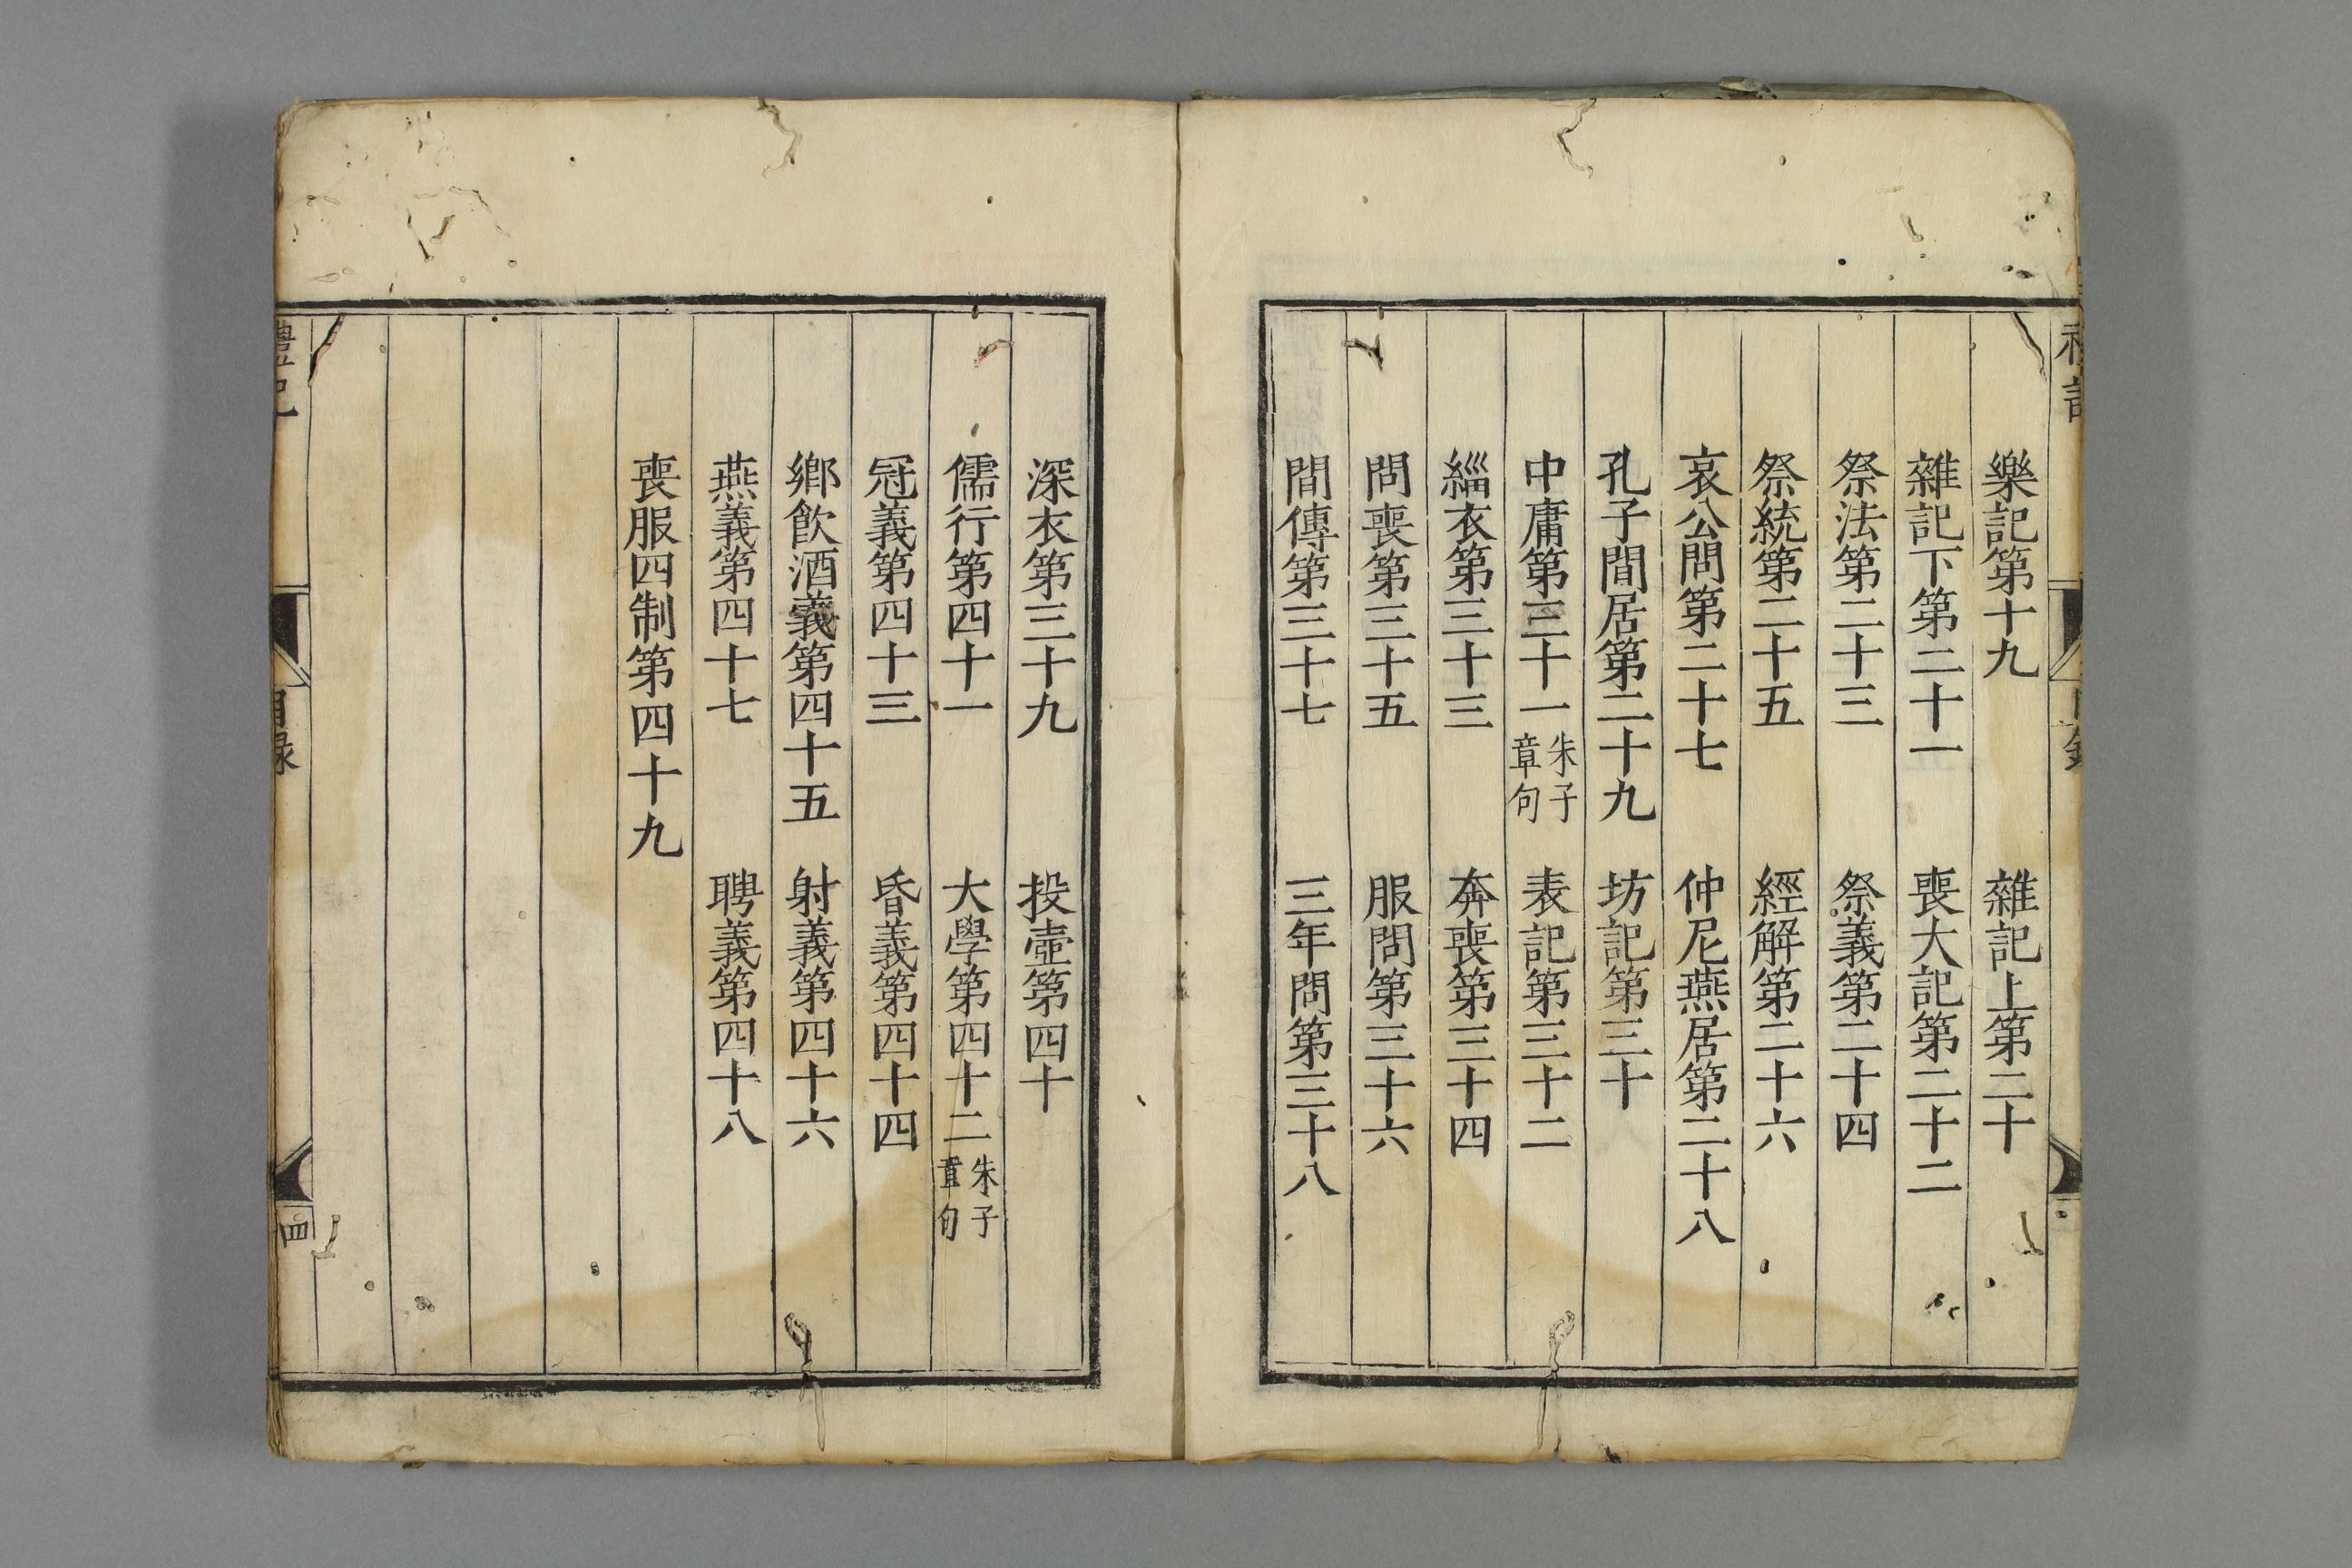 樂記第十九 雜記上第二十
雜記下第二十一 喪大記第二十二
祭法第二十三 祭義第二十四
祭統第二十五 經解第二十六
哀公問第二十七 仲尼燕居第二十八
孔子閒居第二十九 坊記第三十
中庸第三十一 朱子章句 表記第三十二
緇衣第三十三 奔喪第三十四
問喪第三十五 服問第三十六
間傳第三十七 三年問第三十八
深衣第三十九 投壺第四十
儒行第四十一 大學第四十二 朱子章句
冠義第四十三 昏義第四十四
鄉飲酒義第四十五 射義第四十六
燕義第四十七 聘義第四十八
喪服四制第四十九
禮記 目錄 四